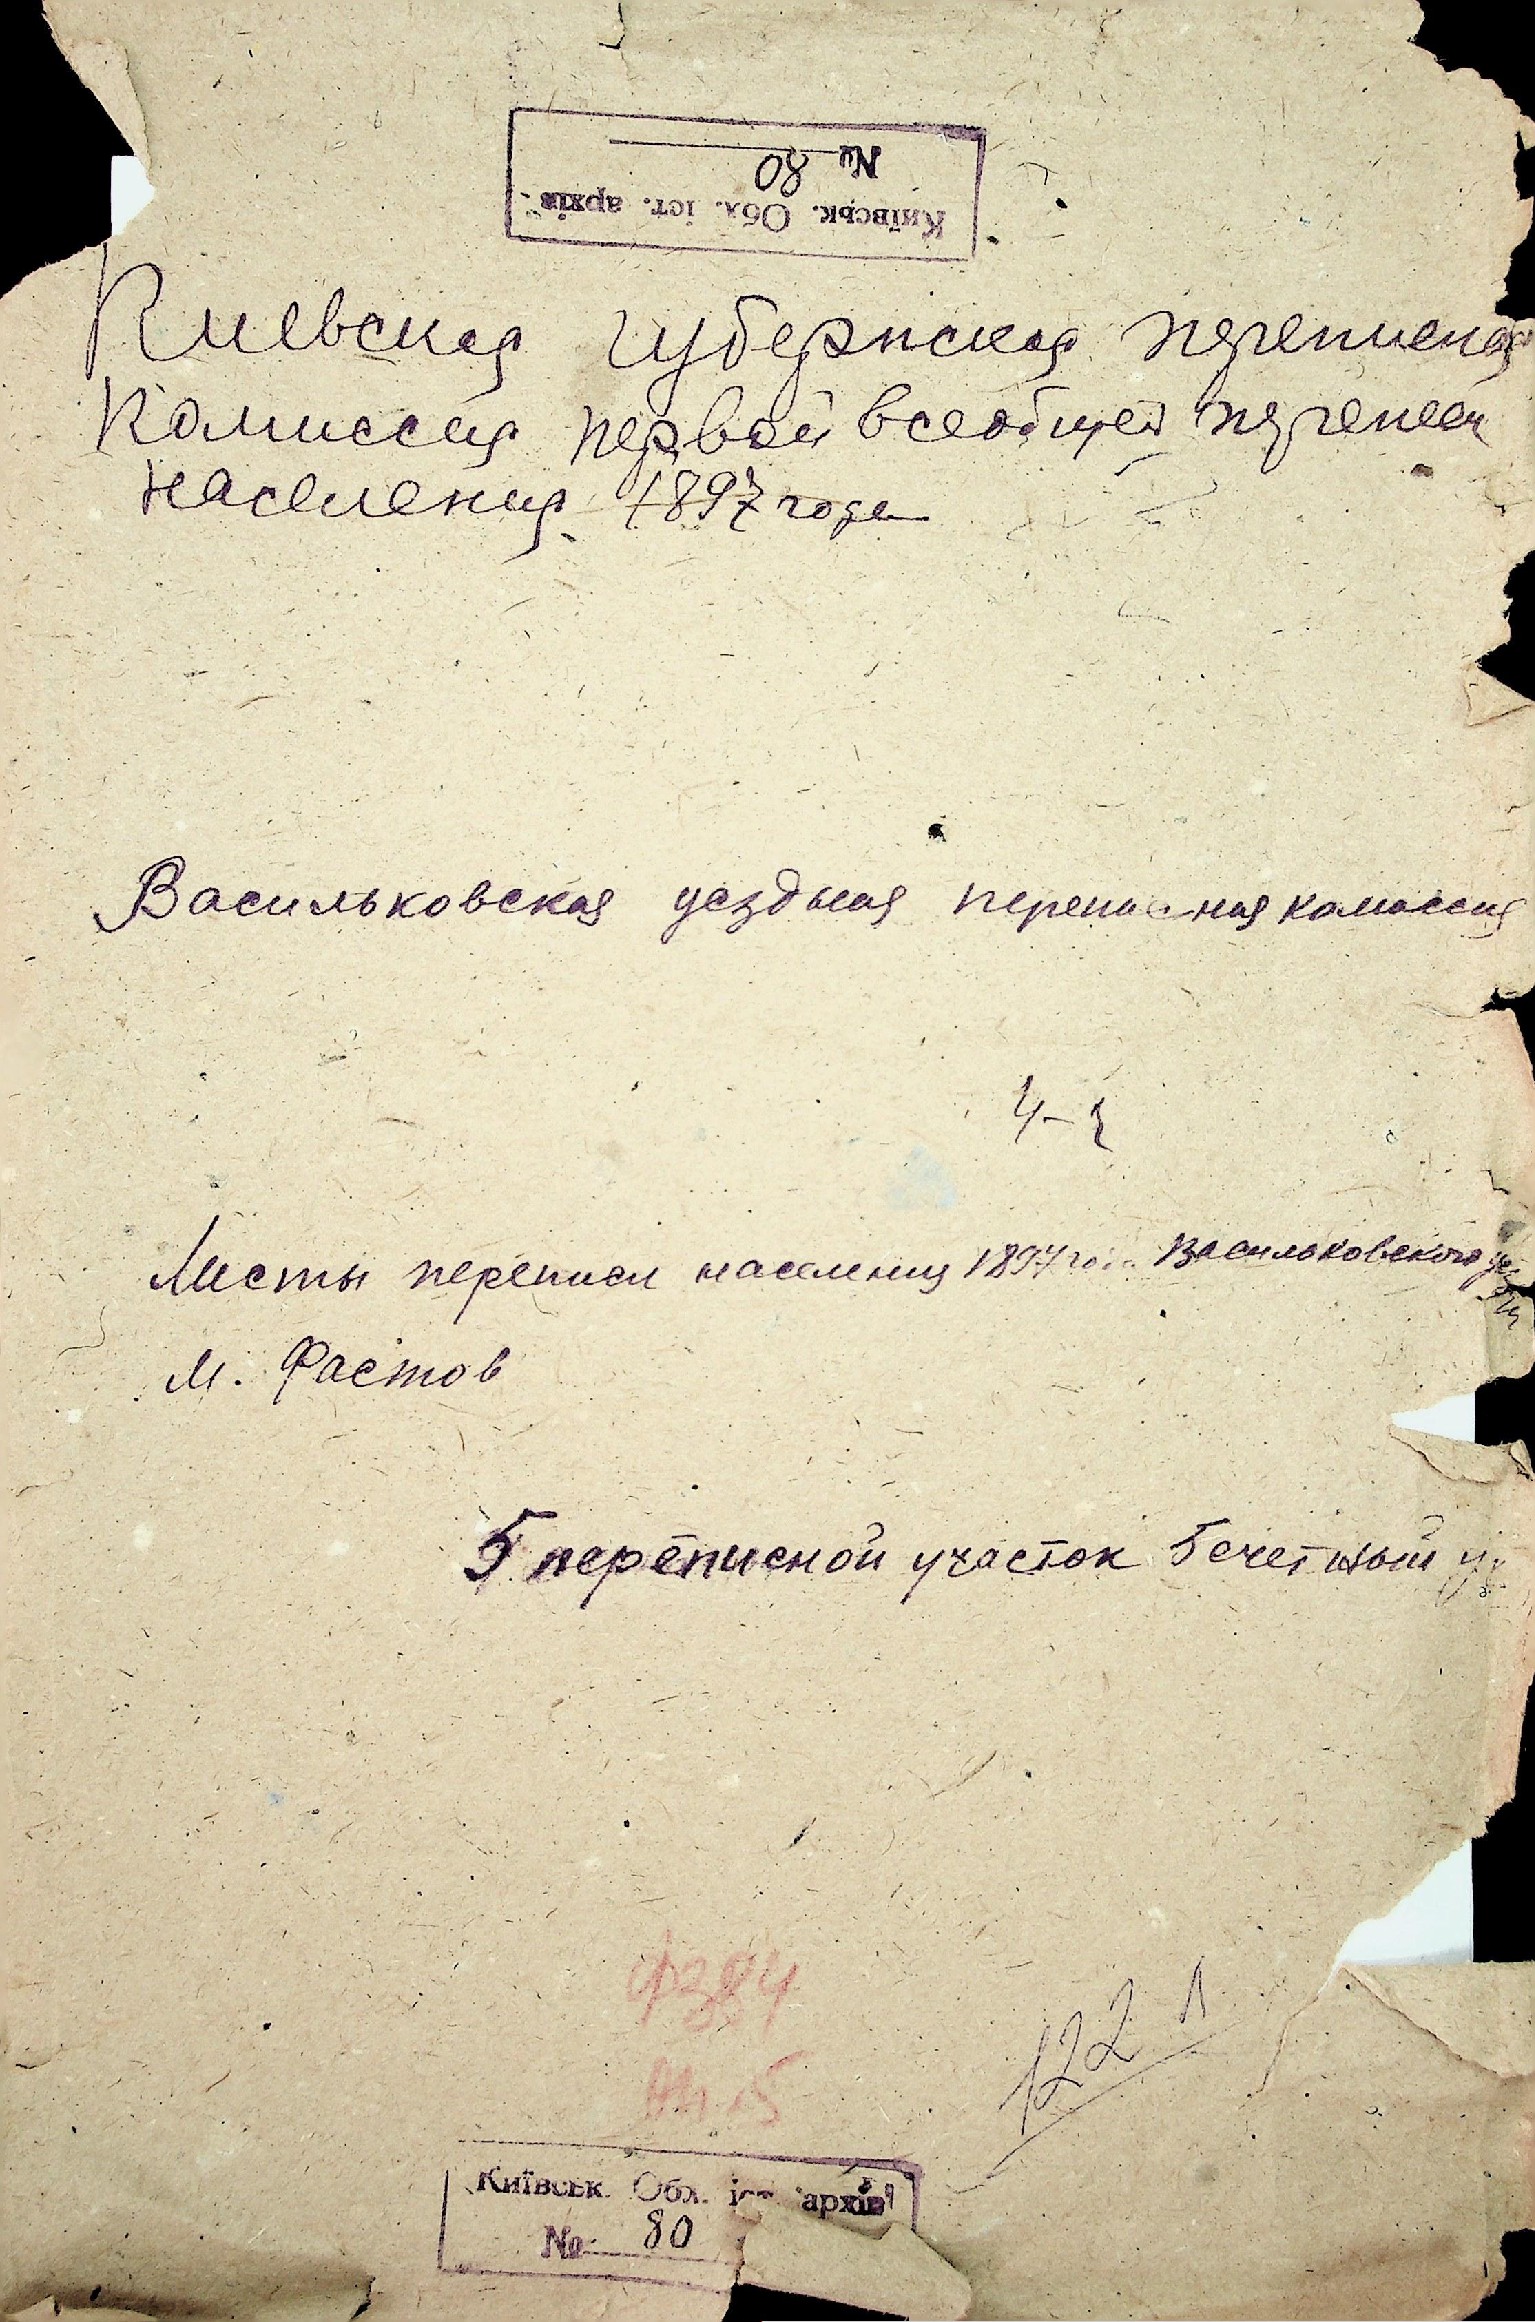 Київськ. Обл. іст. архів
№ 80
Киевская губернская переписная
комиссия первой всеобщей переписи
населения 1897 года
Васильковская уездная переписная комиссия
Листы переписи населения 1897 года Васильковского
м. Фастов
5 переписной участок 5 счетный уч
ф 384
оп. 5
122 л
Київськ. Обл. іст. архів
№ 80